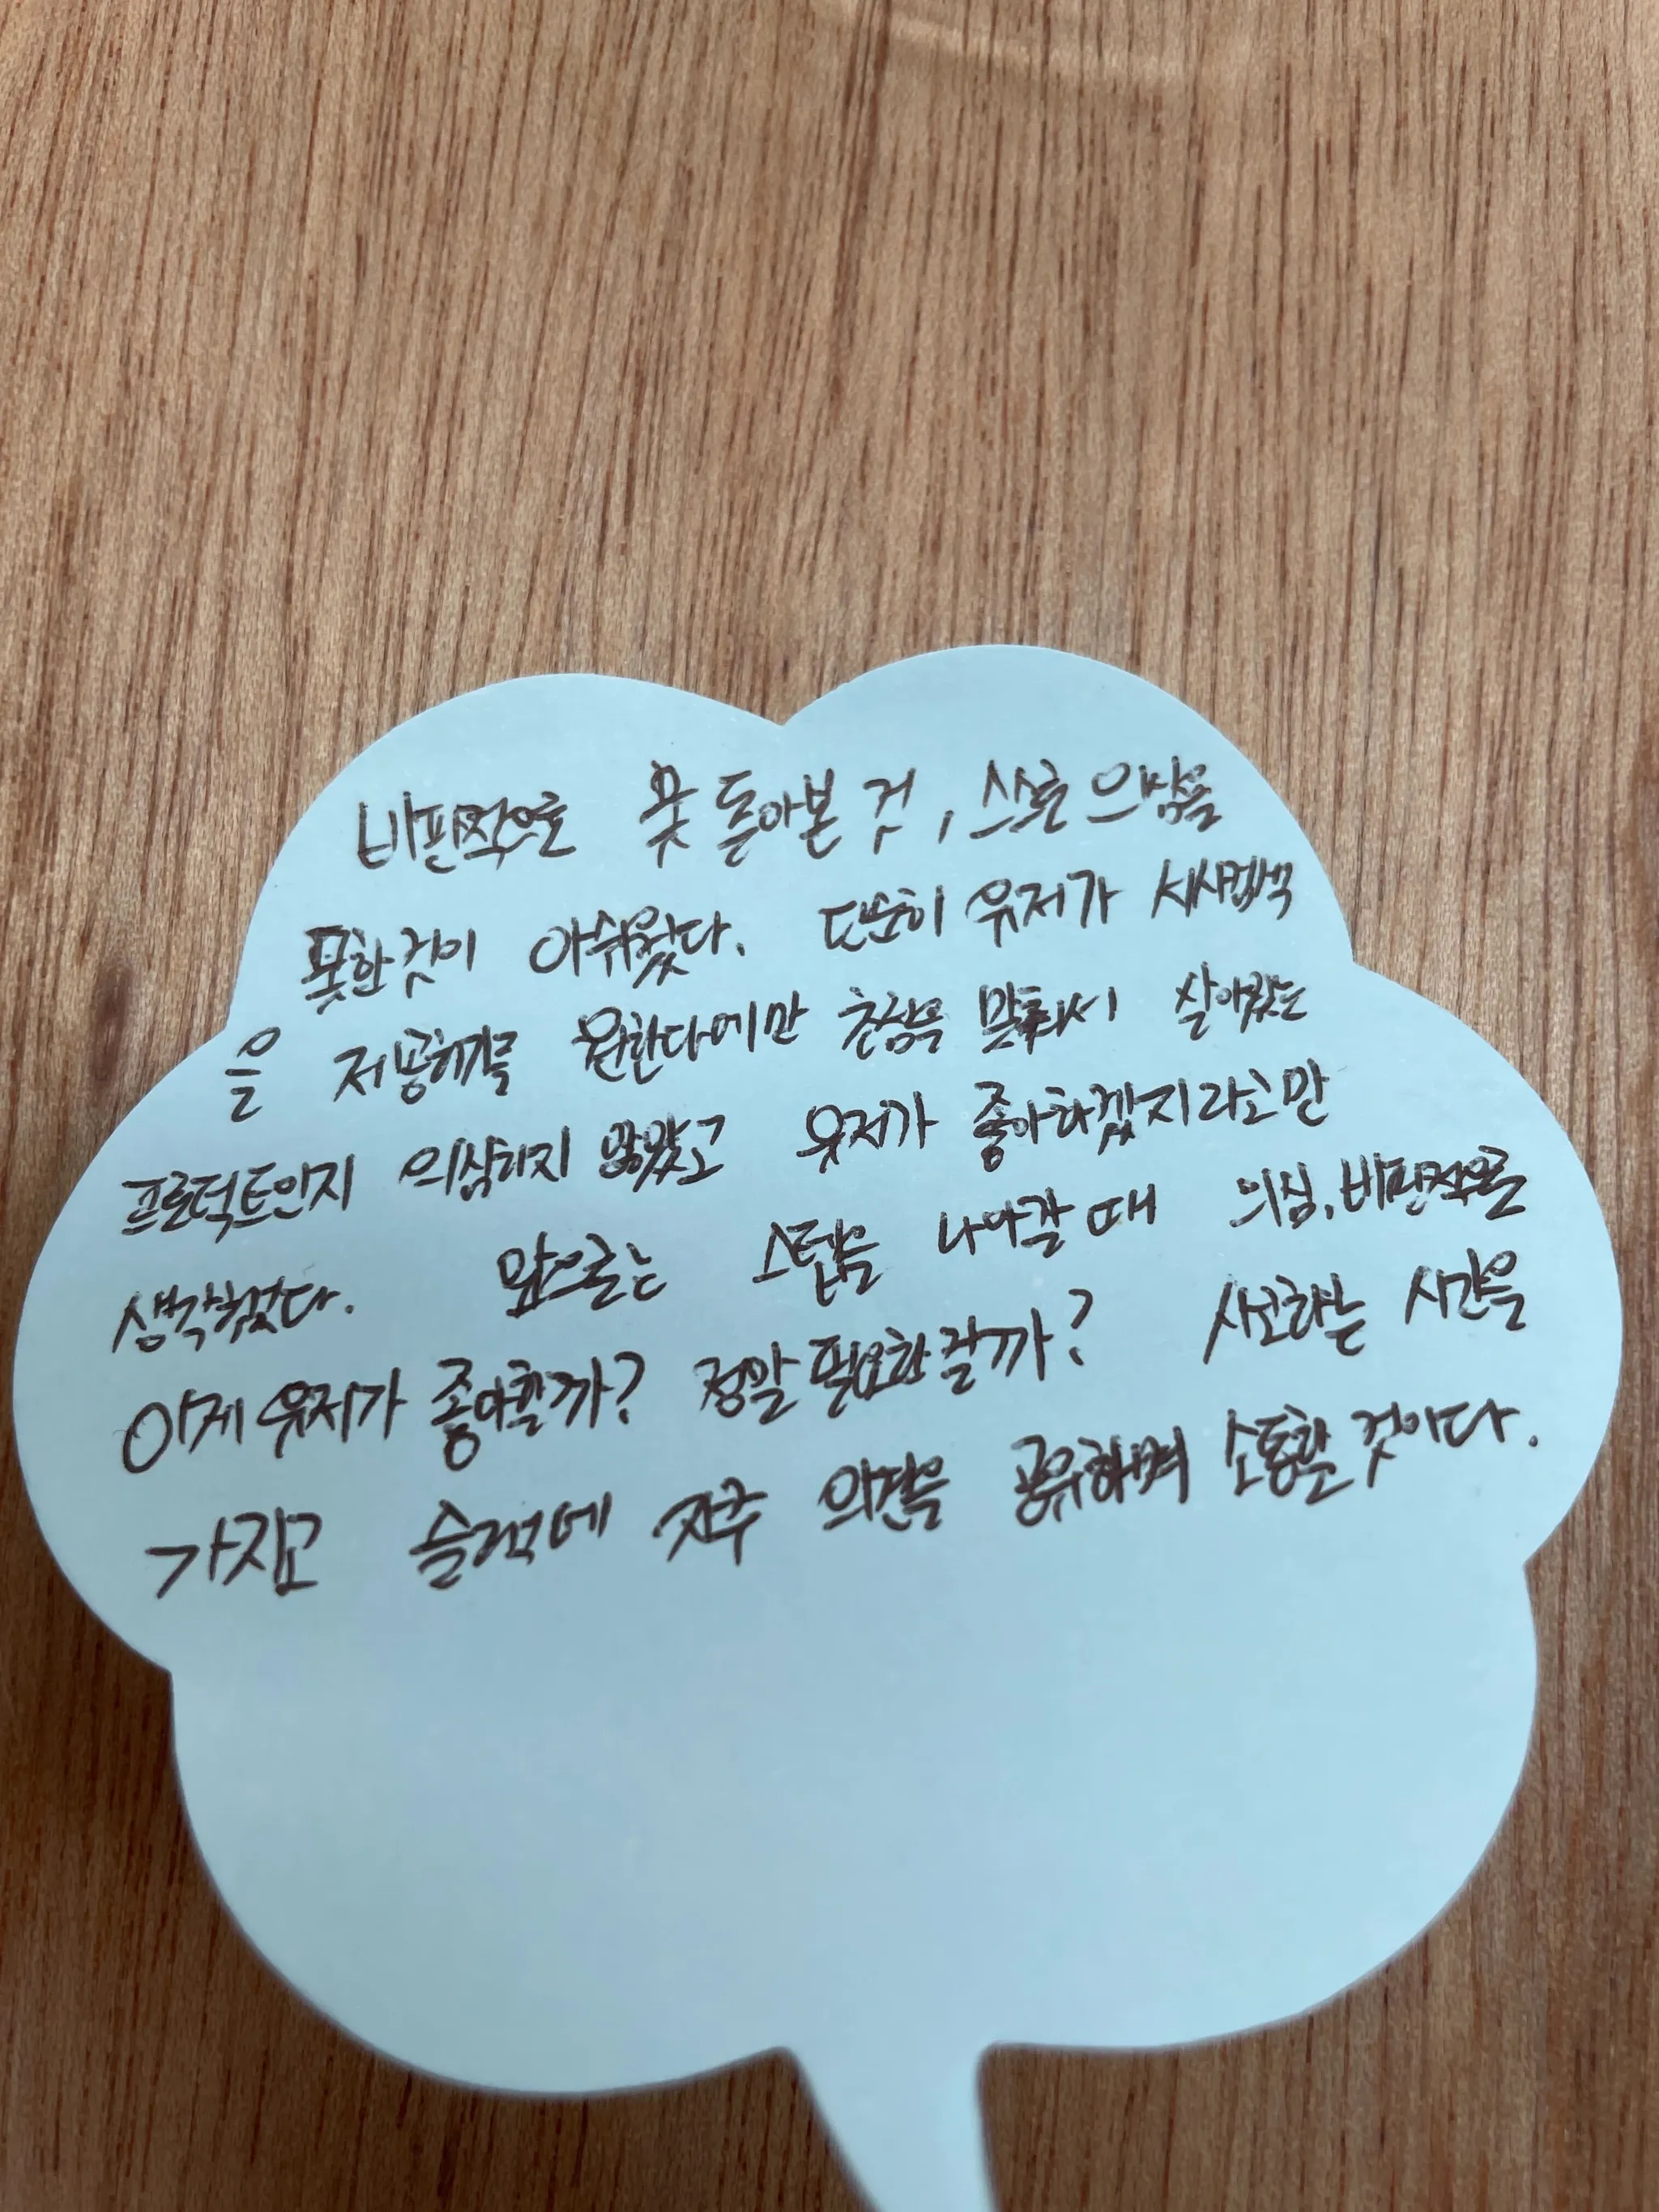 비판적으로 못 돌아본 것, 스스로 의심을
못한것이 아쉬웠다. 단순히 유저가 시사검색
을 제공해주길 원한다에만 초점을 맞춰서 살아있는
프로덕트인지 의심하지 않았고 유저가 좋아하겠지라고만
생각했었다. 앞으로는 스텝을 나아갈 때 의심, 비판적으로
이게 유저가 좋아할까? 정말 필요한걸까? 사고하는 시간을
가지고 슬랙에 자주 의견을 공유하며 소통할 것이다.